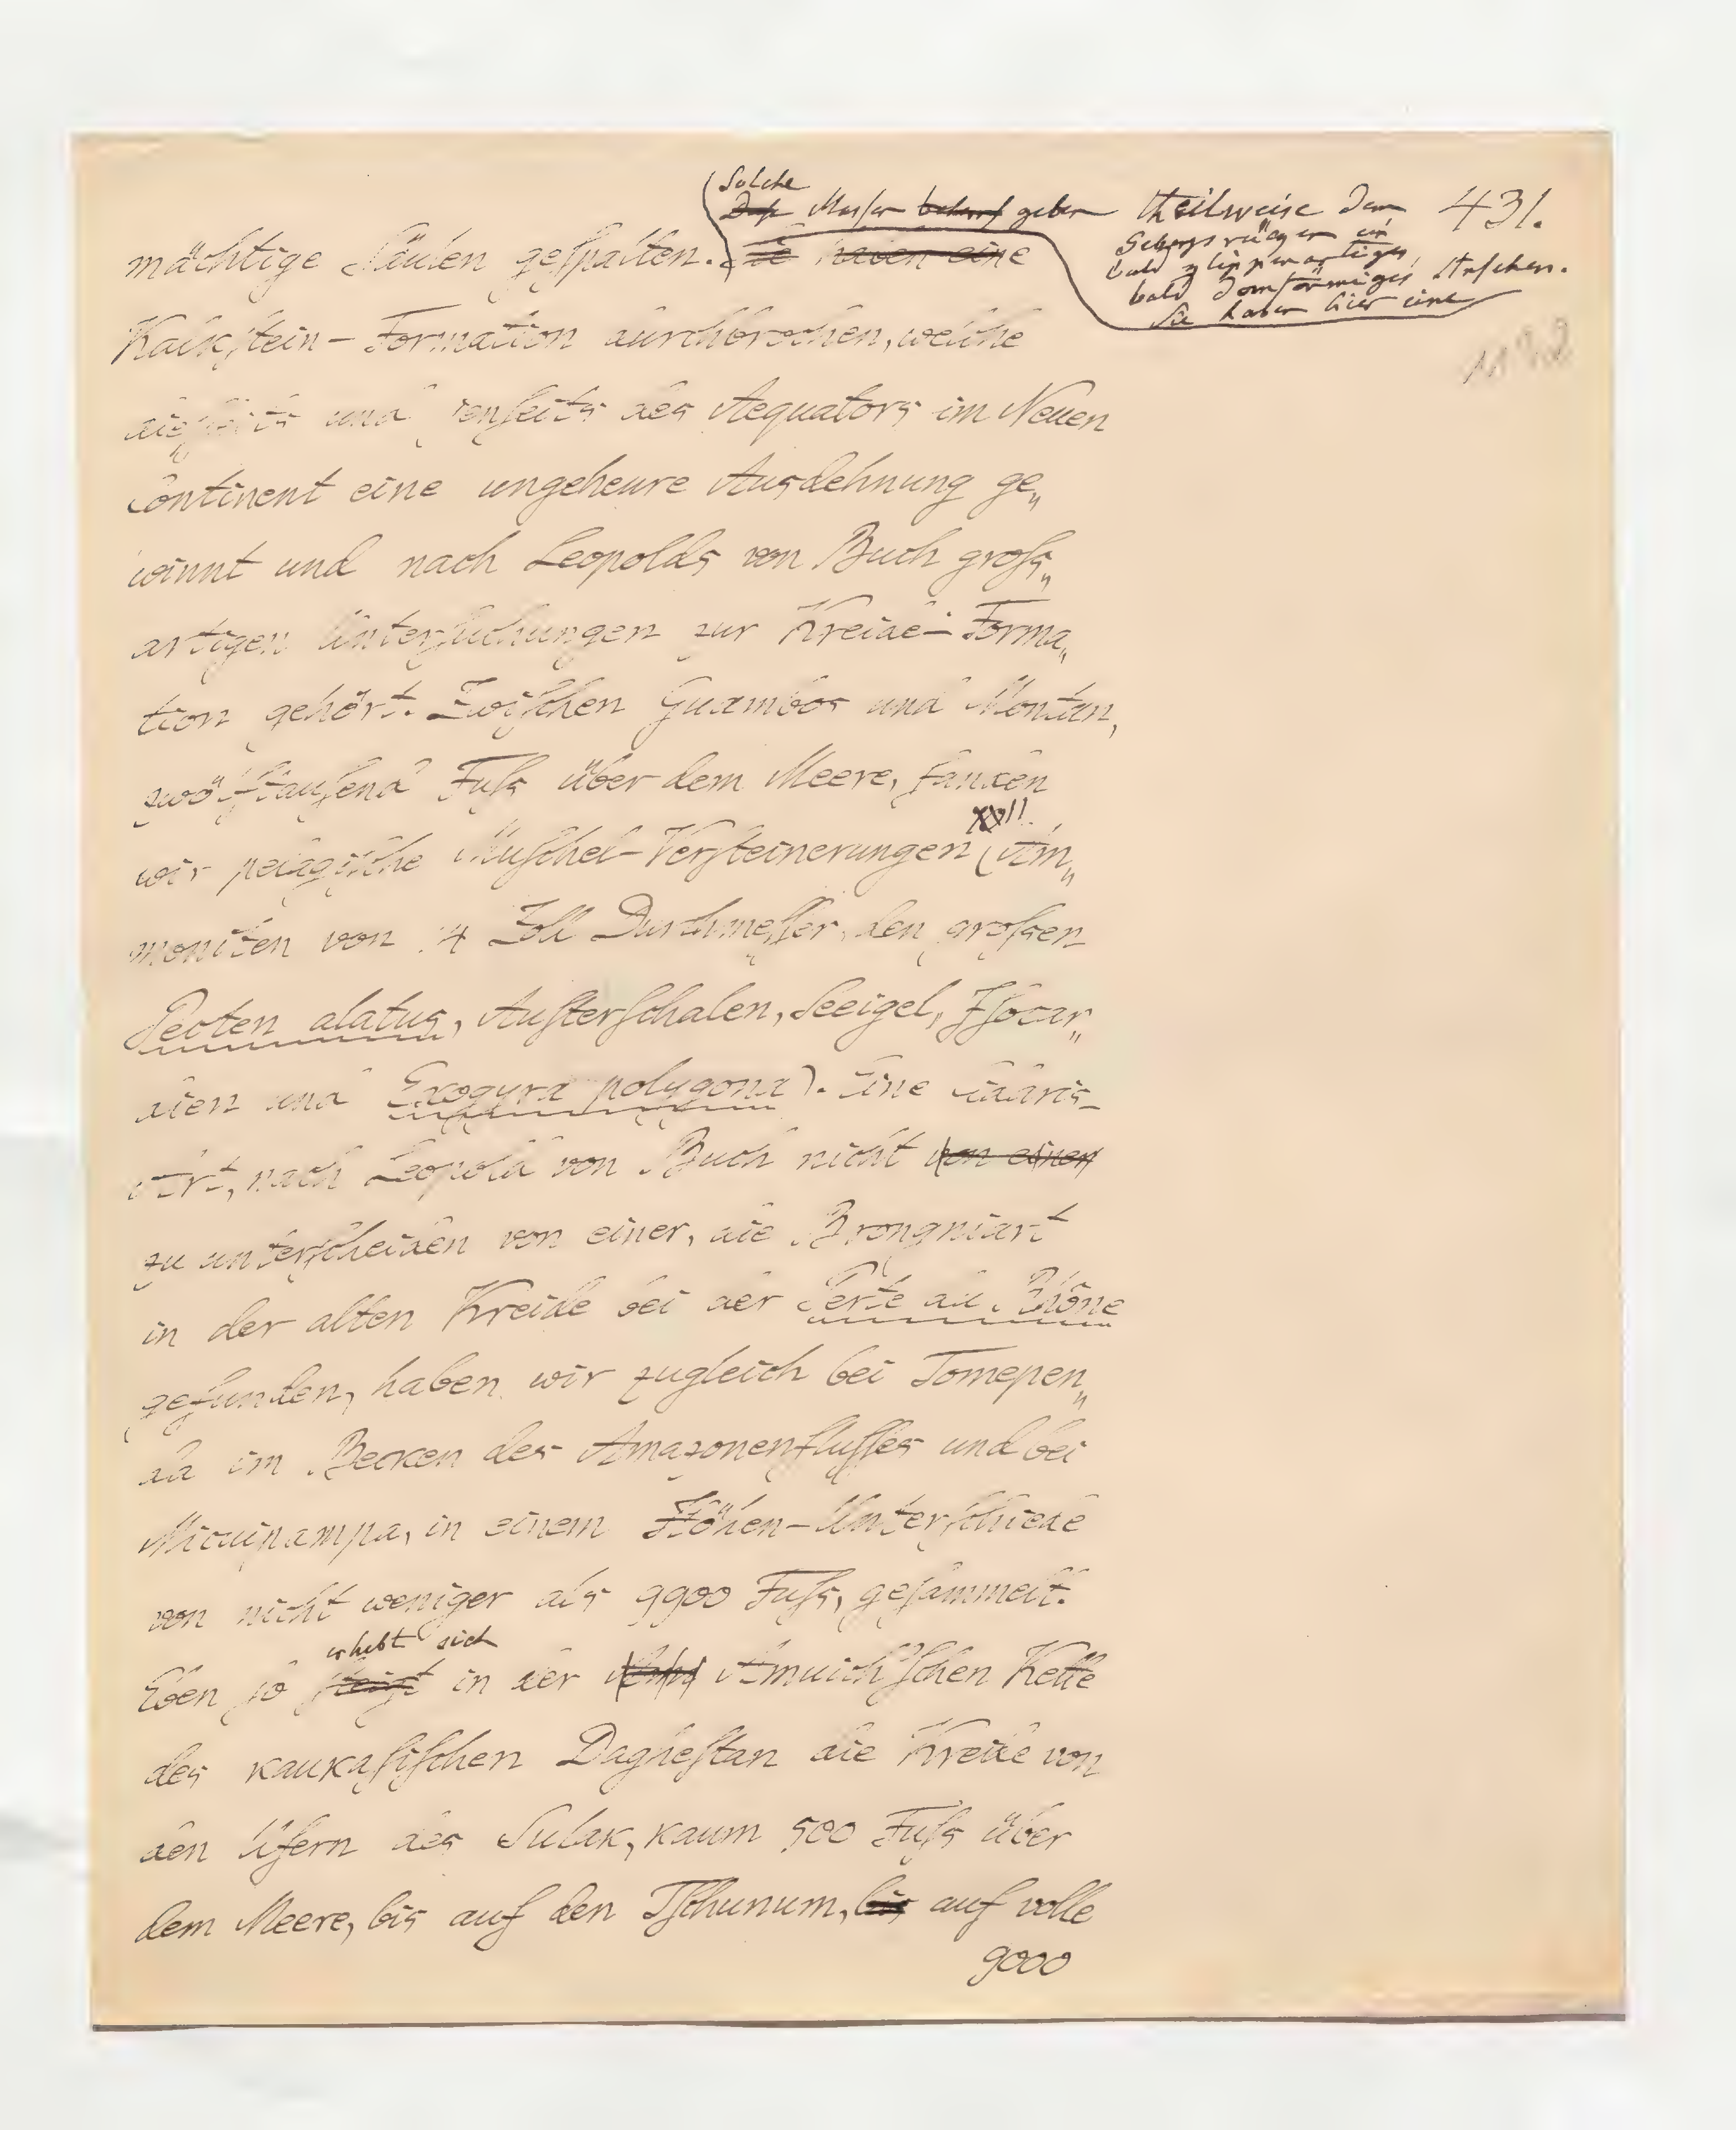 Solche
Diese Massen geben theilweise dem 431.
Gebirgsrücken ein
bald glockenartiges,
bald domförmiges Ansehen.
Sie haben hier eine
mächtige Säulen gespalten. Sie haben eine
Kalkſtein-Formation durchbrochen, welche
dieſſeits und jenſeits des Aequators im Neuen
Continent eine ungeheure Ausdehnung ge„
winnt und nach Leopolds von Buch groſs„
artigen Unterſuchungen zur Kreide-Forma„
tion gehört. Zwiſchen Guambos und Montan,
zwölftauſend Fuſs über dem Meere, fanden
XXII.
wir pelagiſche Muſchel-Verſteinerungen (Am„
moniten von 14 Zoll Durchmeſſer, den groſsen
Pecten alatus, Auſterſchalen, Seeigel, Iſocar„
dien und Exogyra polygona). Eine Cidaris-
Art, nach Leopold von Buch nicht von einer
zu unterſcheiden von einer, die Brongniart
in der alten Kreide bei der Perte du Rhône
gefunden, haben wir zugleich bei Tomepen„
da im Becken des Amazonenfluſſes und bei
Micuipampa, in einem Höhen-Unterſchiede
von nicht weniger als 9900 Fuſs, geſammelt.
erhebt sich
Eben ſo ſteigt in der Amuich'ſchen Kette
des kaukaſiſchen Dagheſtan die Kreide von
den Ufern des Sulak, kaum 500 Fuſs über
dem Meere, bis auf den Tſchunum, bis auf volle
9000